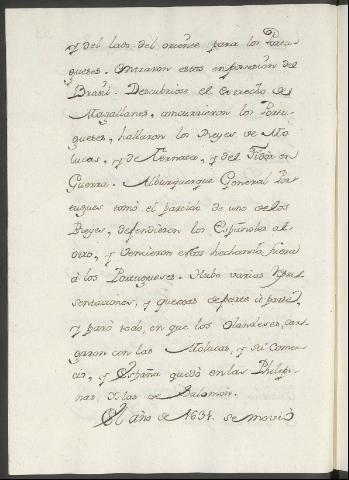 y del lado del oriente para los Portu-
gueses. Entraron estos en posesion del
Brasil. Descubriose el estrecho de
Magallanes, concurrieron los Portu-
gueses, hallaron los Reyes de Mo-
lucas, y de Ternate, y del Tidôr en
Guerra. Alburquerque General Por-
tugues tomó el partido de uno de los
Reyes, defendieron los Españoles al
otro, y vencieron estos hechando fuera
à los Portugueses. Hubo varias repre-
sentaciones, y quexas de parte à parte,
y paró todo, en que los Olandeses, car-
garon con las Molucas, y su Comer-
cio, y España quedó en las Philipi-
nas, Islas de Salomón.
El año de 1634. se movió